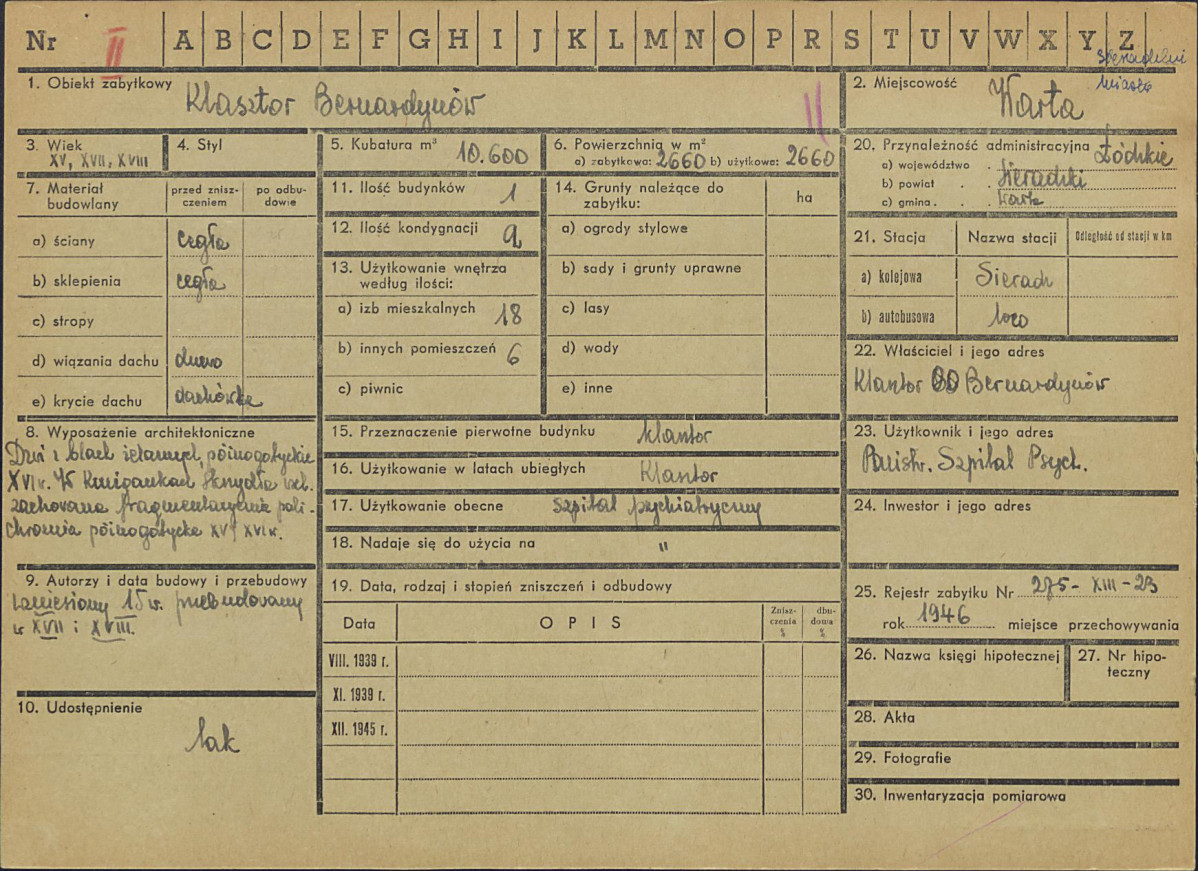 Nr II A B C D E F G H I J K L M N O P R S T U V W X Y Z
1. Obiekt zabytkowy Klasztor Bernardynów II
2. Miejscowość Warta
miasto
3. Wiek XV, XVII, XVIII
4. Styl
5. Kubatura m³ 10.600
6. Powierzchnia w m²
a) zabytkowa: 2660 b) użytkowa: 2660
7. Materiał budowlany
przed znisz-
czeniem
po odbu-
dowie
a) ściany cegła
b) sklepienia cegła
c) stropy
d) wiązania dachu
e) krycie dachu dachówka
8. Wyposażenie architektoniczne
Drzwi z blach żelaznych, późnogotyckie
XVI w. W
zachowana fragmentarycznie poli-
chromia późnogotycka XV/XVI w.
9. Autorzy i data budowy i przebudowy
15 w. przebudowany
w XVII i XVIII.
10. Udostępnienie
tak
11. Ilość budynków 1
12. Ilość kondygnacji
13. Użytkowanie wnętrza
według ilości:
a) izb mieszkalnych 18
b) innych pomieszczeń 6
c) piwnic
14. Grunty należące do
zabytku:
ha
a) ogrody stylowe
b) sady i grunty uprawne
c) lasy
d) wody
e) inne
15. Przeznaczenie pierwotne budynku klasztor
16. Użytkowanie w latach ubiegłych Klasztor
17. Użytkowanie obecne szpital psychiatryczny
18. Nadaje się do użycia na "
19. Data, rodzaj i stopień zniszczeń i odbudowy
Data OPIS
Znisz-
czenia
%
dbu-
dowa
%
VIII. 1939 r.
XI. 1939 r.
XII. 1945 r.
20. Przynależność administracyjna
a) województwo Łódzkie
b) powiat . Sieradzki
c) gmina . . Warta
21. Stacja Nazwa stacji Odległość od stacji w km
a) kolejowa Sieradz
b) autobusowa loco
22. Właściciel i jego adres
Klasztor OO Bernardynów
23. Użytkownik i jego adres
Państw. Szpital Psych.
24. Inwestor i jego adres
25. Rejestr zabytku Nr 275-XIII-23
rok 1946 miejsce przechowywania
26. Nazwa księgi hipotecznej
27. Nr hipo-
teczny
28. Akta
29. Fotografie
30. Inwentaryzacja pomiarowa